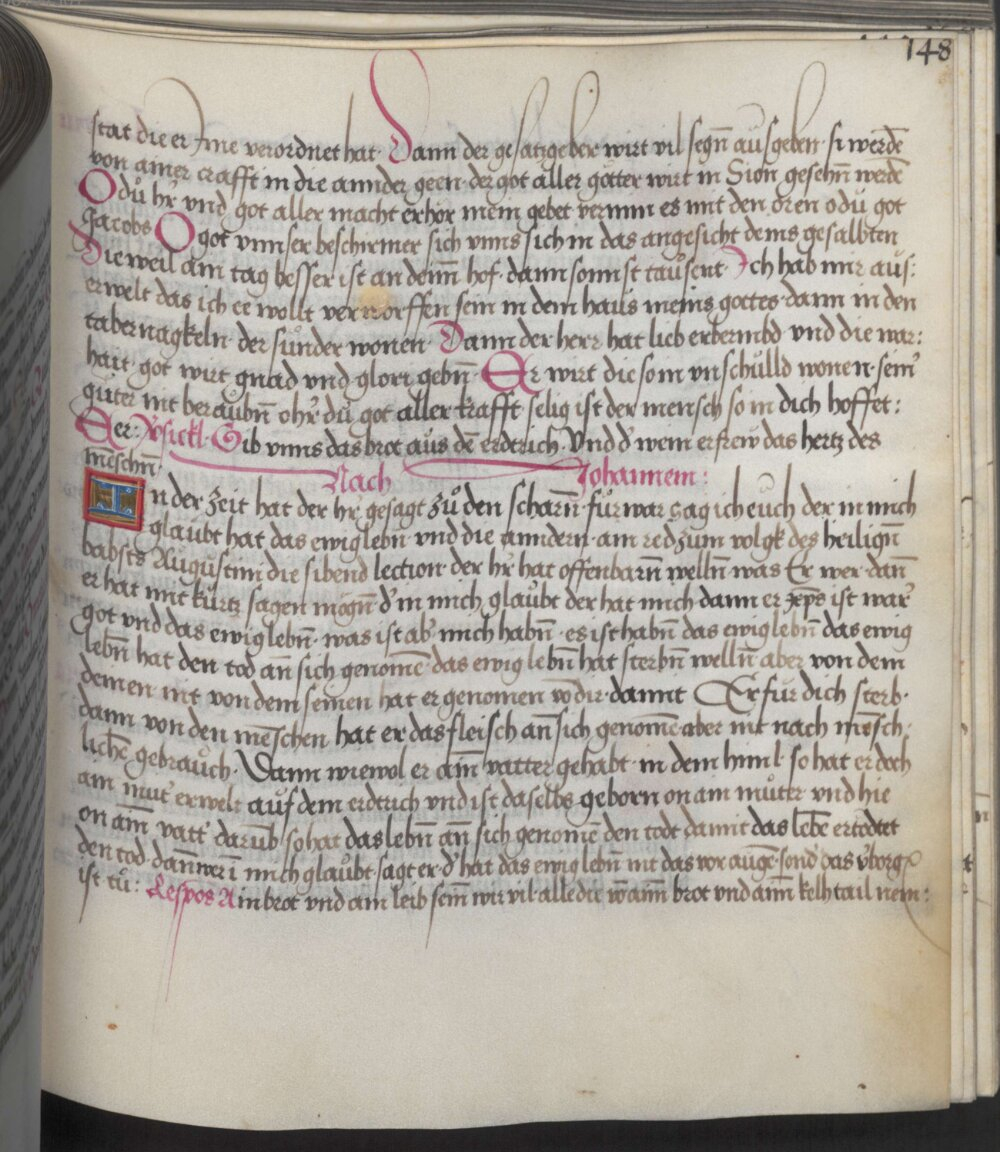 148
stat die er Ime verordnet hat · Dann der gesatzgeber wirt vil segn̄ ausgeben · si werdē
von ainer crafft in die annder geen · der got aller götter wirt in Sion gesehn̄ werdē
O dů hr̄ vnd got aller macht erhör mein gebet vernim es mit den oren o dů got
Jacobs O got vnnser beschirmer sich vnns sich in das angesicht deins gesalbten
Die weil ain tag besser ist an deinn̄ hof · dann sonnst tausent · Ich hab mir aus:
erwelt das ich ee wollt verworffen sein in dem haus meins gottes · dann in den
tabernagkeln der sůnder wonen · Dann der herr hat lieb erbermbd vnd die war:
hait · got wirt gnad vnd glori gebn̄ · Er wirt die so in vnschulld wonen · seiner
güter nit beraubn̄ o hr̄ dů got aller krafft selig ist der mensch so in dich hoffet:
Ver: Psickl · Gib vnns das brot aus dē erdtrich · Vnd d' wein erfrew das hertz des
mēschn̄ ·
Nach Johannem:
In der zeit hat der hr̄ gesagt zů den scharn̄ · fürwar sag ich euch der in mich
glaubt hat das ewig lebn̄ · vnd die anndern · ain red zum volgk des heilign̄
babsts Augustini die sibend lection · der hr̄ hat offenbarn̄ welln̄ was Er wer · dan̄
er hat mit kürtz sagen mögn̄ d' in mich glaubt der hat mich dann er xp̄s ist warer
got vnd das ewig lebn̄ · was ist ab' mich habn̄ · es ist habn̄ das ewig lebn̄ das ewig
lebn̄ hat den tod an̄ sich genomē · das ewig lebn̄ hat sterbn̄ welln̄ aber von dem
deinen nit von dem seinen hat er genomen vō dir · damit Er für dich sterb ·
dann von den mēschen hat er das fleisch an̄ sich genomē aber nit nach mēsch:
lichē gebrauch · Dann wiewol er ain̄ vatter gehabt in dem himl · so hat er doch
ain mut' erwelt auf dem erdtrich vnd ist daselbs geborn on ain můter vnd hie
on ain̄ vatt' darub̄ so hat das lebn̄ an̄ sich genomē den todt damit das lebē ertödtet
den tod · dan̄ wer ī mich glaubt · sagt er · d' hat das ewig lebn̄ nit das vor augē · sond' das v'borgē
ist tů: Respos Ain brot vnd ain leib sein̄ wir vil alle die v̄o ain̄ brot vnd ain̄ kelh tail nem: